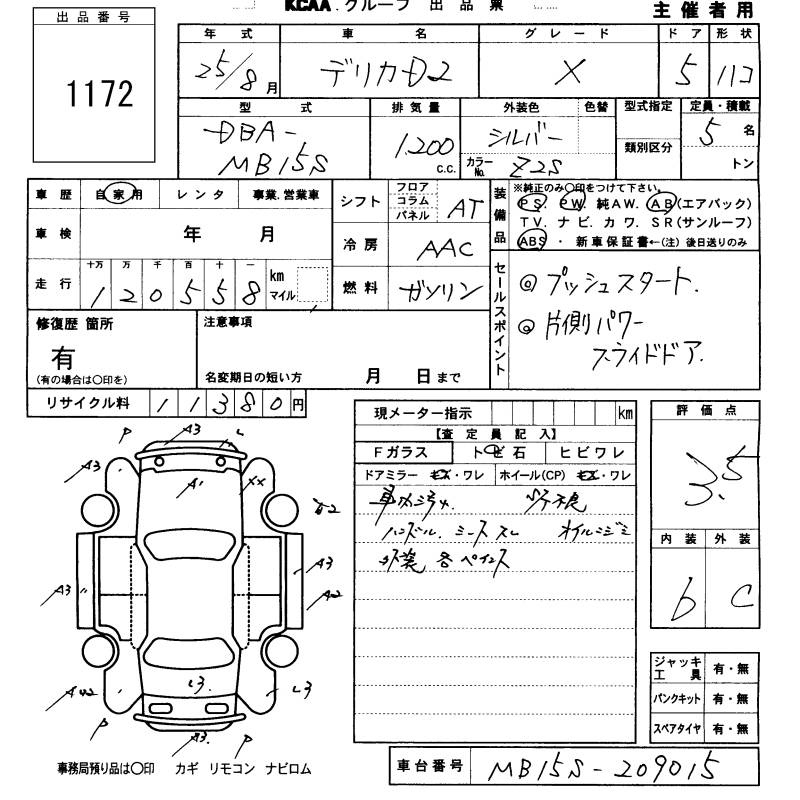 KCAA.グループ 出品票
主催者用
出品番号
1172
年式 車名 グレード ドア 形状
25/8月 デリカD2 X 5 ハコ
型式 排気量 外装色 色替 型式指定 定員・積載
類別区分
DBA-
MB15S
1200 c.c.
シルバー
カラーNo. Z2S
5 名
トン
車歴 自家用 レンタ 事業.営業車
車検 年 月
走行 十万 万 千 百 十 一
120558 km
マイル
シフト フロア コラム パネル AT
冷房 AAC
燃料 ガソリン
装備品
※純正のみ〇印をつけて下さい。
PS PW 純AW. AB(エアバック)
TV. ナビ. カワ. SR(サンルーフ)
ABS ・ 新車保証書←(注) 後日送りのみ
セールスポイント
◎プッシュスタート.
◎片側パワー
スライドドア.
修復歴 箇所
有
(有の場合は〇印を)
注意事項
名変期日の短い方 月 日まで
リサイクル料 11380円
現メーター指示 km
【査定員記入】
Fガラス トビ石 ヒビワレ
ドアミラー キズ・ワレ ホイール(CP) キズ・ワレ
ハンドル. シートスレ オイルニジミ
外装 各 ペイント
評価点
3.5
内装 外装
b C
ジャッキ工具 有・無
パンクキット 有・無
スペアタイヤ 有・無
P A3 L
A3 A1 XX
A3 A3
A2
A42 L3 L3
P A3. P
事務局預り品は〇印 カギ リモコン ナビロム
車台番号 MB15S-209015